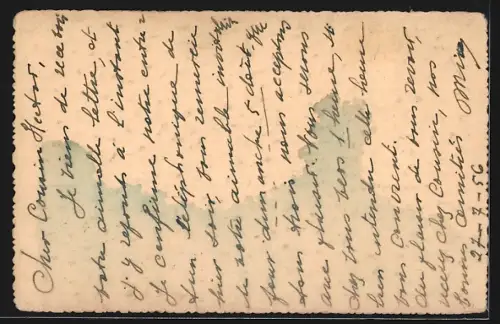 Cher Cousin Hector,
Je viens de recevoir
votre aimable lettre, et
j'y réponds à l'instant
Je confirme notre entre-
tien téléphonique de
hier soir, vous remercie
de votre aimable invitation
pour dimanche 5 Août que
tous nous acceptons
avec plaisir. Nous serons
chez vous vers 1 heure, si
bien entendu cette heure
vous convient.
Au plaisir de vous revoir,
recevez cher Cousin, nos
bonnes amitiés
27-7-56